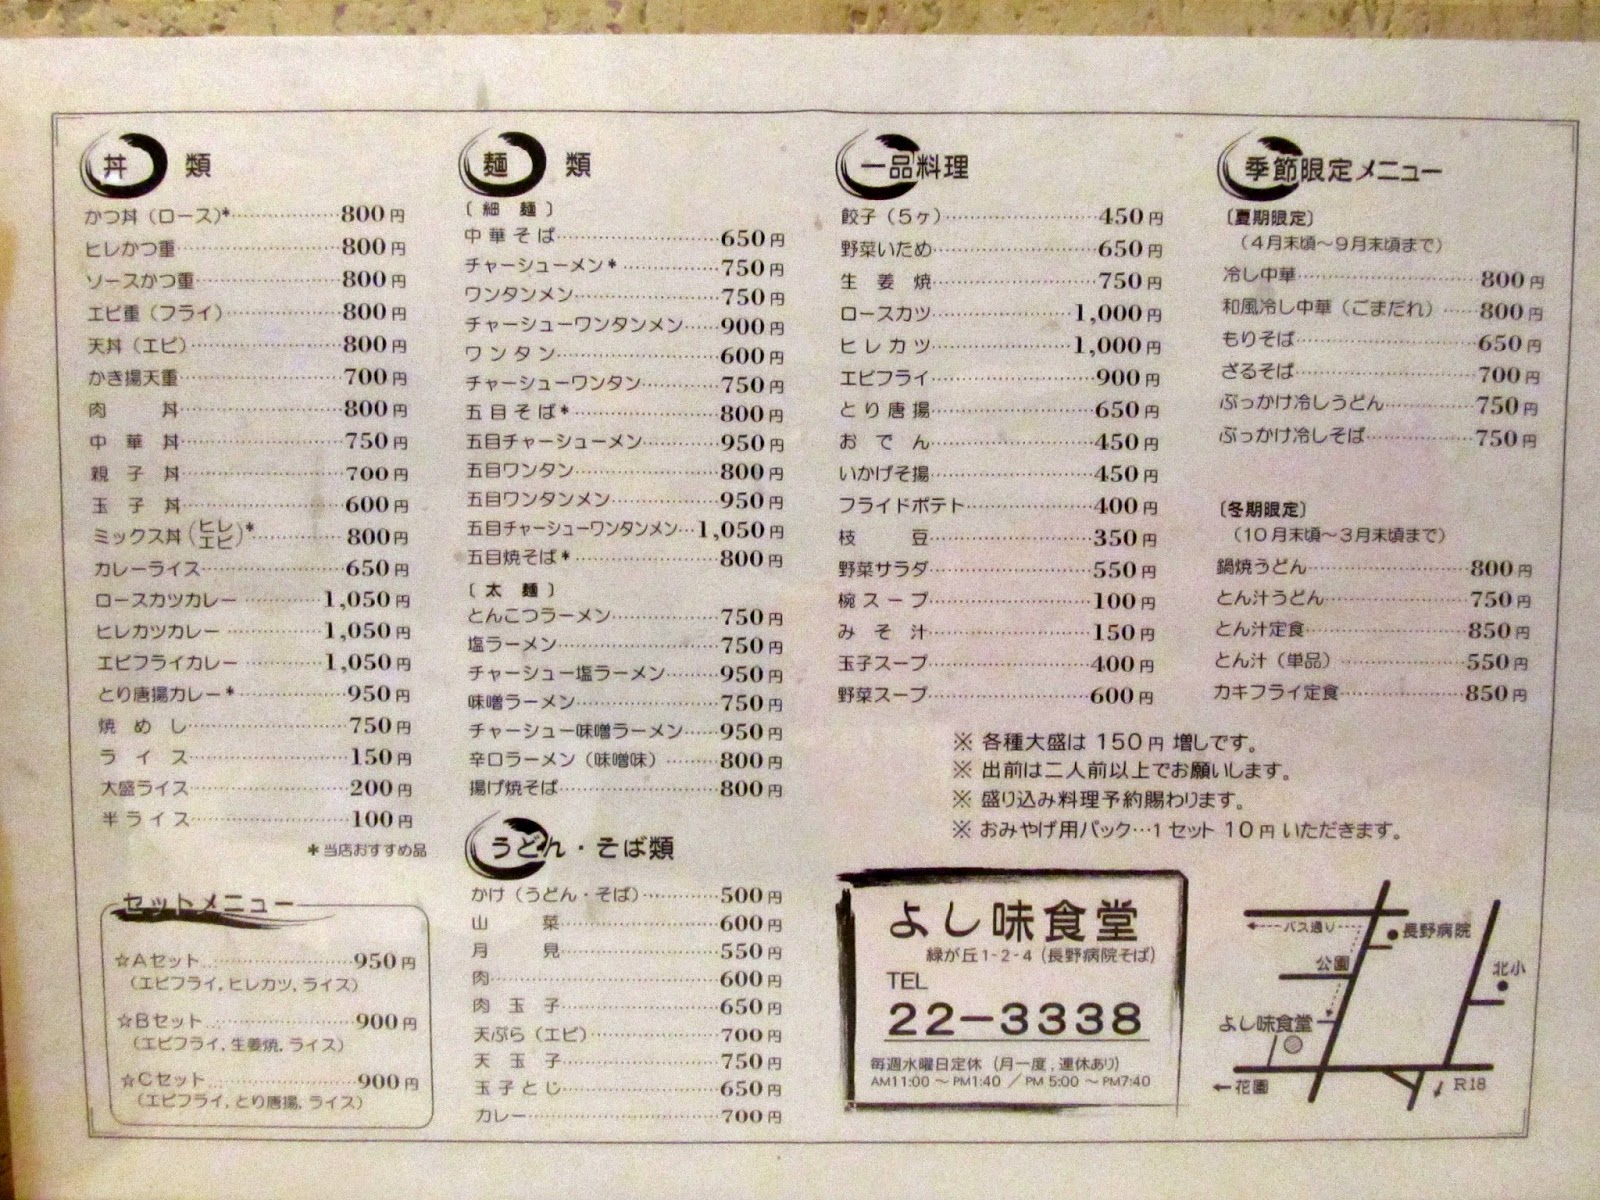 丼 類
かつ丼（ロース）*……………800円
ヒレかつ重……………800円
ソースかつ重……………800円
エビ重（フライ）……………800円
天丼（エビ）……………800円
かき揚天重……………700円
肉丼……………800円
中華丼……………750円
親子丼……………700円
玉子丼……………600円
ミックス丼（ヒレ エビ）*……………800円
カレーライス……………650円
ロースカツカレー……………1,050円
ヒレカツカレー……………1,050円
エビフライカレー……………1,050円
とり唐揚カレー*……………950円
焼めし……………750円
ライス……………150円
大盛ライス……………200円
半ライス……………100円
*当店おすすめ品
セットメニュー
☆Aセット……………950円
（エビフライ, ヒレカツ, ライス）
☆Bセット……………900円
（エビフライ, 生姜焼, ライス）
☆Cセット……………900円
（エビフライ, とり唐揚, ライス）
麺 類
〔細麺〕
中華そば……………650円
チャーシューメン*……………750円
ワンタンメン……………750円
チャーシューワンタンメン……900円
ワンタン……………600円
チャーシューワンタン……………750円
五目そば*……………800円
五目チャーシューメン……………950円
五目ワンタン……………800円
五目ワンタンメン……………950円
五目チャーシューワンタンメン…1,050円
五目焼そば*……………800円
〔太麺〕
とんこつラーメン……………750円
塩ラーメン……………750円
チャーシュー塩ラーメン……950円
味噌ラーメン……………750円
チャーシュー味噌ラーメン……950円
辛口ラーメン（味噌味）……800円
揚げ焼そば……………800円
うどん・そば類
かけ（うどん・そば）……………500円
山菜……………600円
月見……………550円
肉……………600円
肉玉子……………650円
天ぷら（エビ）……………700円
天玉子……………750円
玉子とじ……………650円
カレー……………700円
一品料理
餃子（5ヶ）……………450円
野菜いため……………650円
生姜焼……………750円
ロースカツ……………1,000円
ヒレカツ……………1,000円
エビフライ……………900円
とり唐揚……………650円
おでん……………450円
いかげそ揚……………450円
フライドポテト……………400円
枝豆……………350円
野菜サラダ……………550円
椀スープ……………100円
みそ汁……………150円
玉子スープ……………400円
野菜スープ……………600円
季節限定メニュー
〔夏期限定〕
（4月末頃～9月末頃まで）
冷し中華……………800円
和風冷し中華（ごまだれ）……800円
もりそば……………650円
ざるそば……………700円
ぶっかけ冷しうどん……………750円
ぶっかけ冷しそば……………750円
〔冬期限定〕
（10月末頃～3月末頃まで）
鍋焼うどん……………800円
とん汁うどん……………750円
とん汁定食……………850円
とん汁（単品）……………550円
カキフライ定食……………850円
※ 各種大盛は 150円 増しです。
※ 出前は二人前以上でお願いします。
※ 盛り込み料理予約賜わります。
※ おみやげ用パック…1セット 10円 いただきます。
よし味食堂
緑が丘1-2-4（長野病院そば）
TEL
22-3338
毎週水曜日定休（月一度, 連休あり）
AM11:00 ～ PM1:40 ／PM 5:00 ～ PM7:40
バス通り
長野病院
公園
北小
よし味食堂
←花園
R18